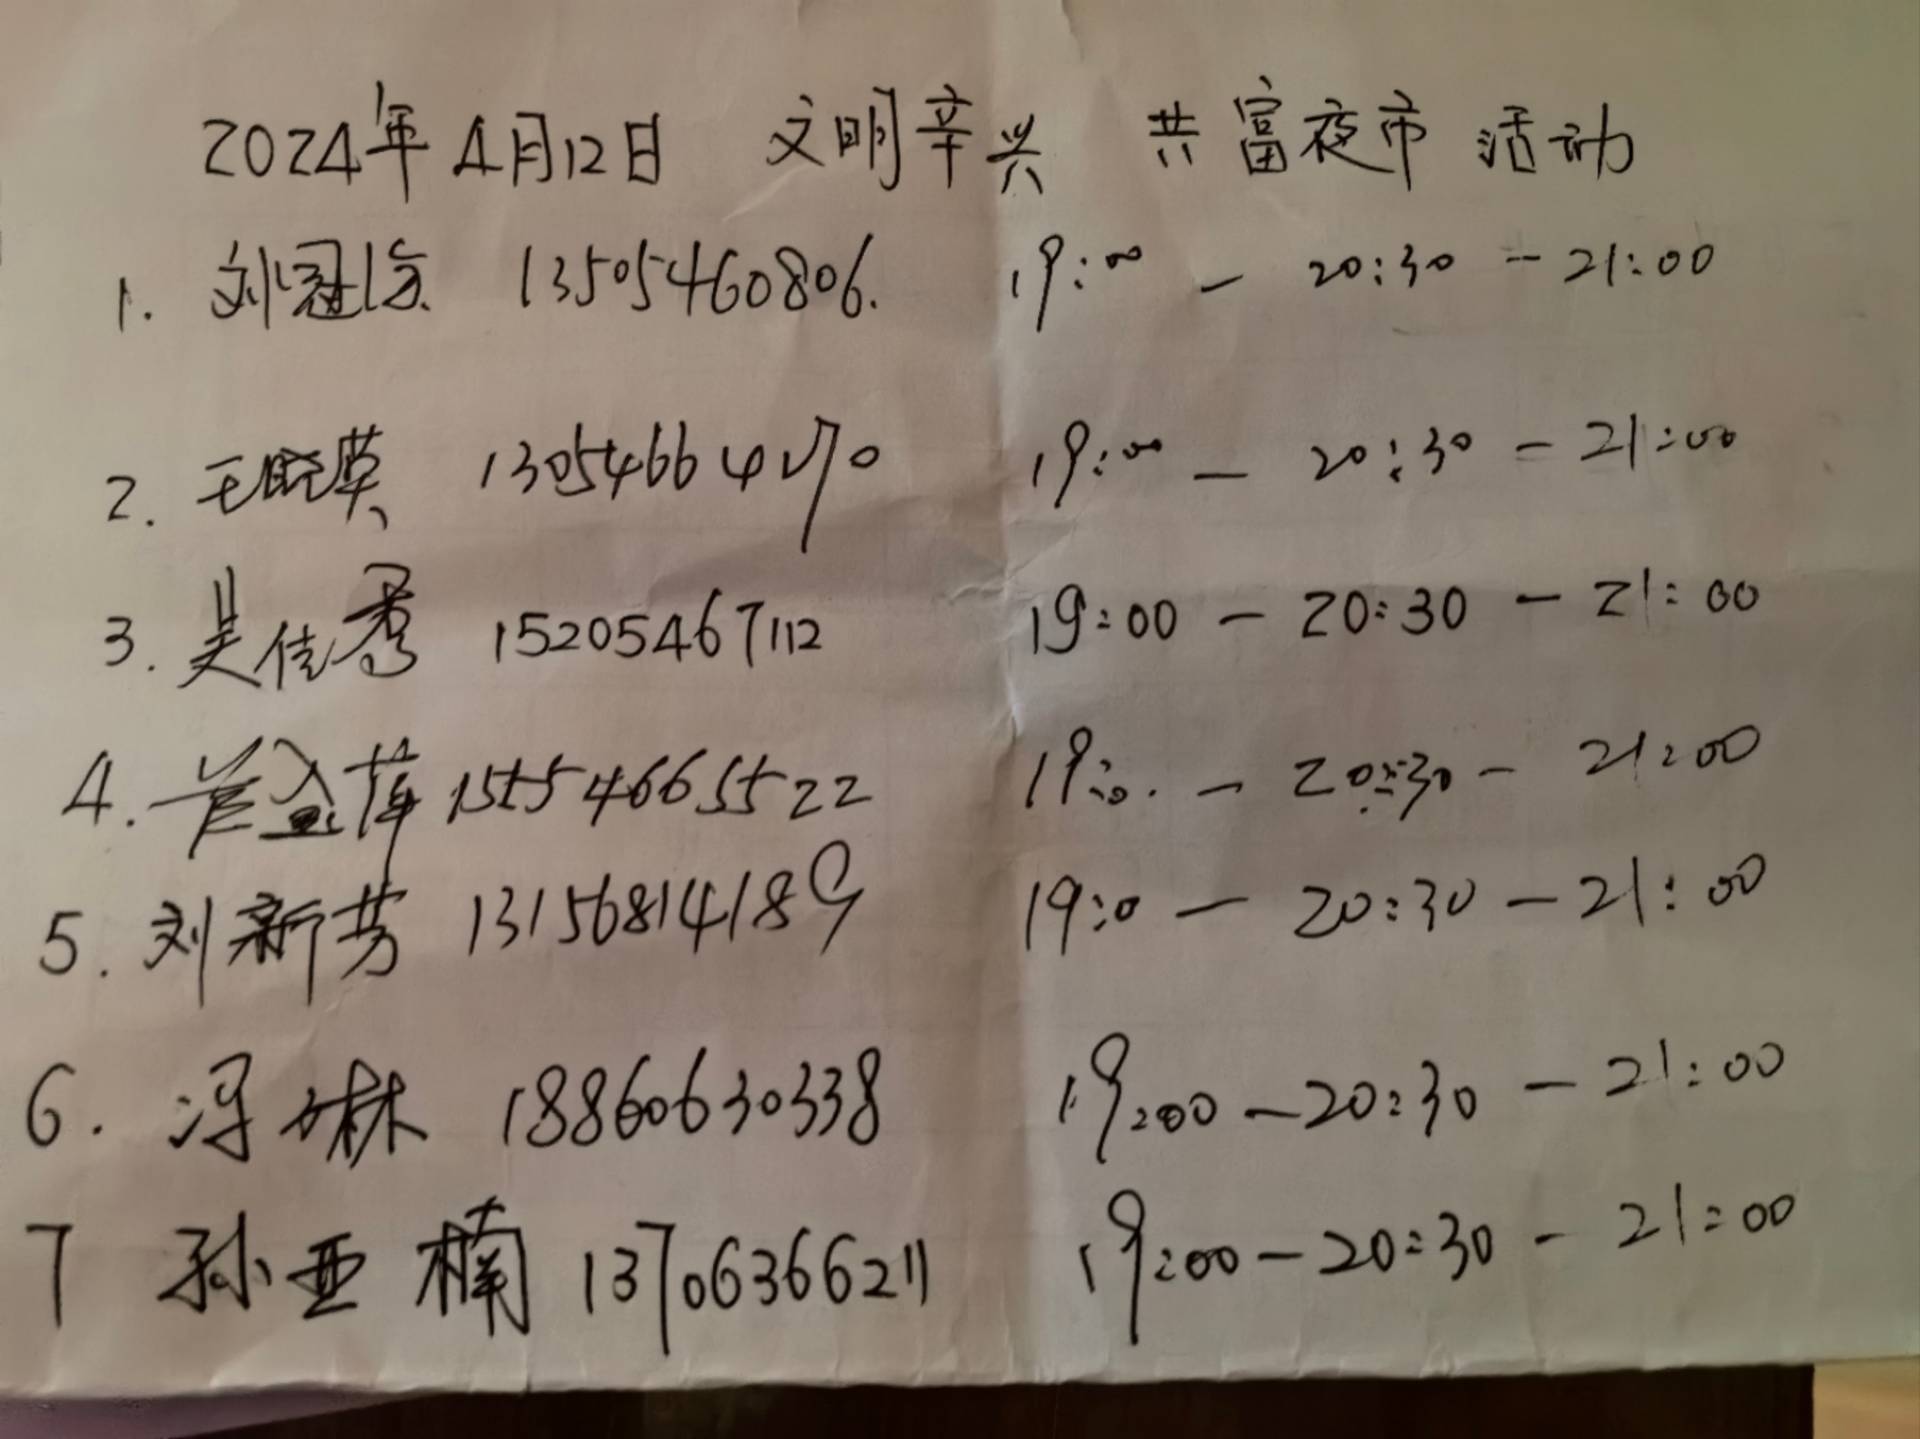 2024年4月12日 文明辛兴 共富夜市 活动
1. 刘冠 13505460806. 19:00 - 20:30 - 21:00
2. 王晓英 19:00 - 20:30 - 21:00
3. 吴佳秀 15205467112 19:00 - 20:30 - 21:00
4. 萍 15554665522 19:00 - 20:30 - 21:00
5. 刘新芳 13156814189 19:0 - 20:30 - 21:00
6. 冯琳 18860630338 19:00 - 20:30 - 21:00
7 孙亚楠 13706366211 19:00 - 20:30 - 21:00